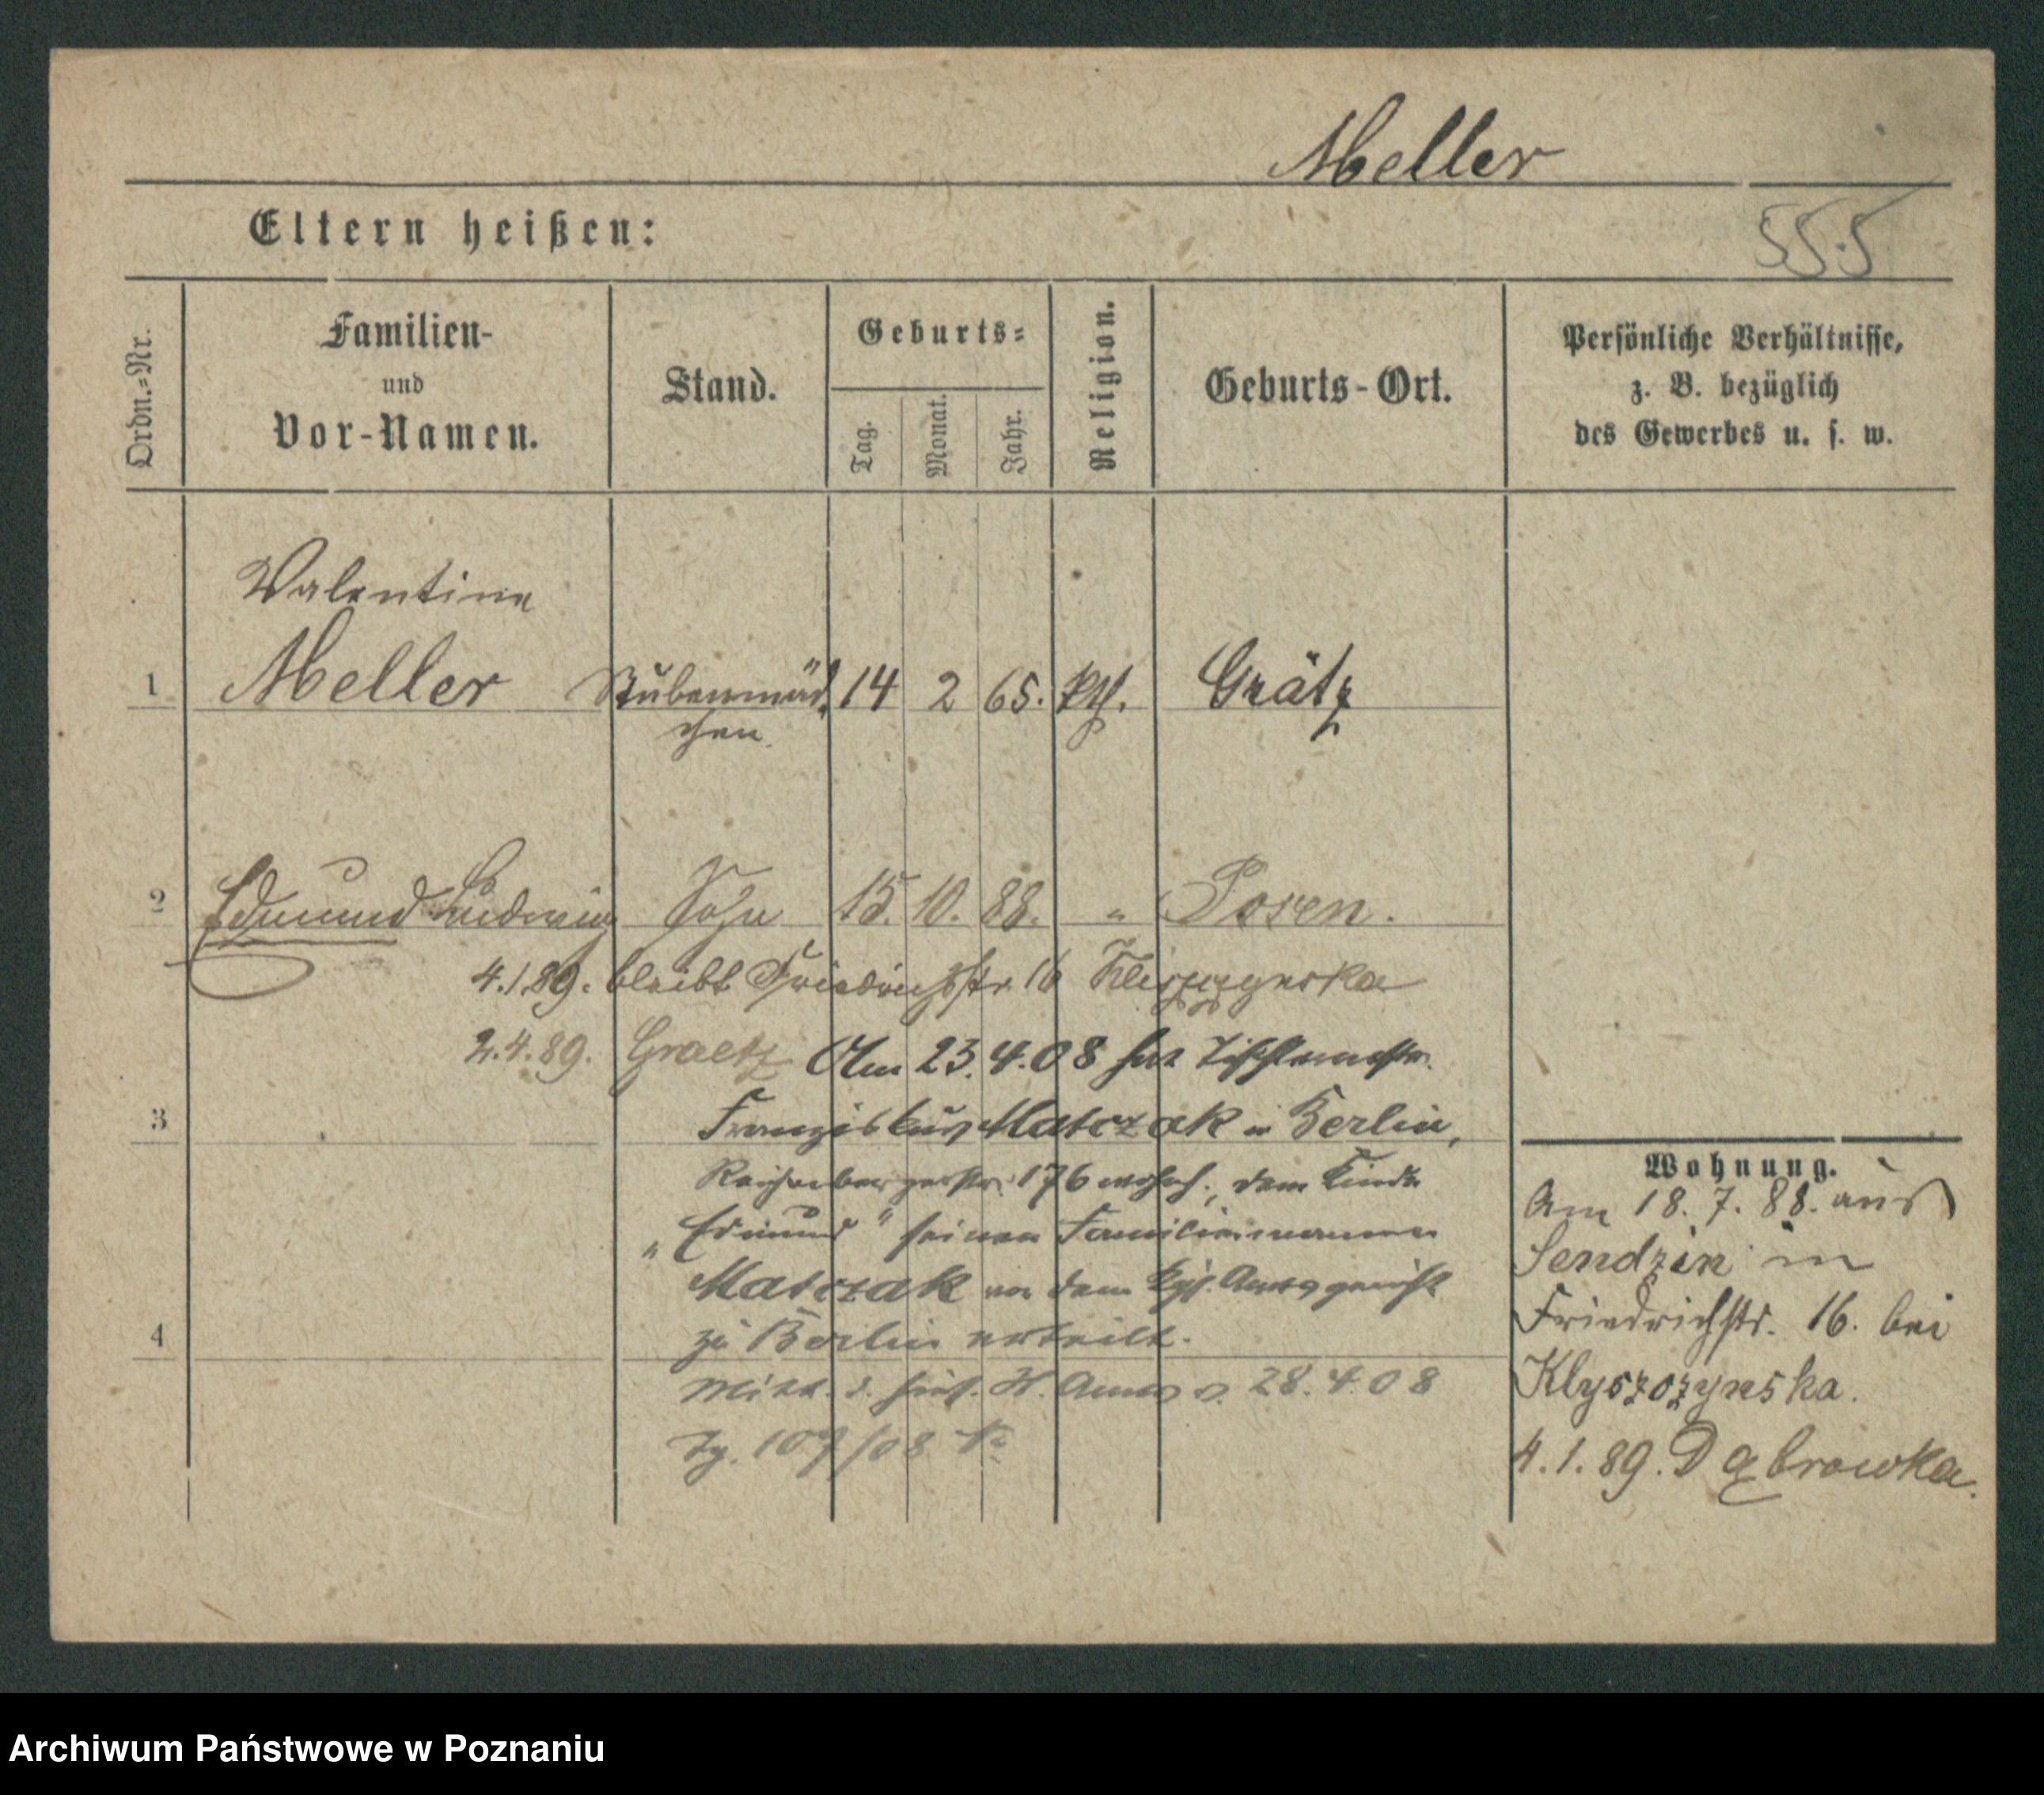 Meller
Eltern heißen:
555
Ordn.-Nr.
Familien-
und
Vor-Namen.
Stand.
Geburts-
Tag.
Monat.
Jahr.
Religion.
Geburts-Ort.
Persönliche Verhältnisse,
z. B. bezüglich
des Gewerbes u. s. w.
Valentine
1 Meller Stubenmäd 14 2 65. kth. Grätz
chen
2 Edmund Ludwig Sohn 15. 10. 88. " Posen.
4.1.89. bleibt Friedrichstr. 16
2.4.89. Graetz Am 23.4.08 hat Tischlermstr.
3 Franziskus Matczak in Berlin,
Reichenbergerstr. 176 wohnh., dem Kinde
„Edmund" seinen Familiennamen
Matczak vor dem Kgl. Amtsgericht
4 zu Berlin erteilt.
Mitt. d. St. Amts v. 28.4.08
Tg. 107/08
Wohnung.
Am 18. 7. 88. aus
Sendzin in
Friedrichstr. 16. bei
Klyszczynska.
4.1.89. Dąbrowka.
Archiwum Państwowe w Poznaniu